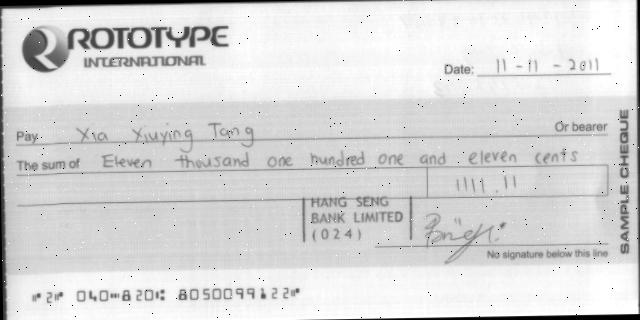 ROTOTYPE
INTERNATIONAL
Date: 11-11-2011
Pay Xia Xiuying Tang Or bearer
The sum of Eleven thousand one hundred one and eleven cents
11111.11
HANG SENG
BANK LIMITED
(024)
No signature below this line
SAMPLE CHEQUE
⑈2⑈ 040⑉820⑆ 805009912 2⑈